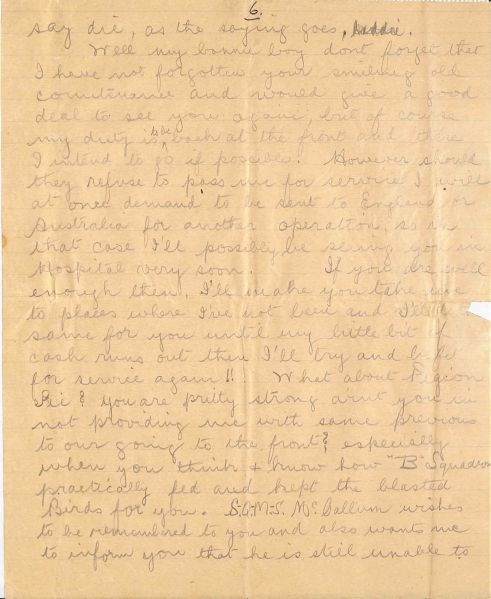 6.
say die, as the saying goes, laddie.
Well my bonnie boy dont forget that
I have not forgotten your smiling old
countenance and would give a good
deal to see you again, but of course
my duty is to be back at the front and there
I intend to go if possible. However should
they refuse to pass me for service I will
at once demand to be sent to England or
Australia for another operation, so in
that case I'll possibly be seeing you in
Hospital very soon. If you are well
enough then, I'll make you take me
to places where I've not been and I'll
same for you until my little bit of
cash runs out then I'll try and be fit
for service again!! What about Pigeon
Pie? you are pretty strong arnt you in
not providing me with same previous
to our going to the front? especially
when you think & know how "B" Squadron
practically fed and kept the blasted
Birds for you. S.Q.M.S. McCallum wishes
to be remembered to you and also wants me
to inform you that he is still unable to